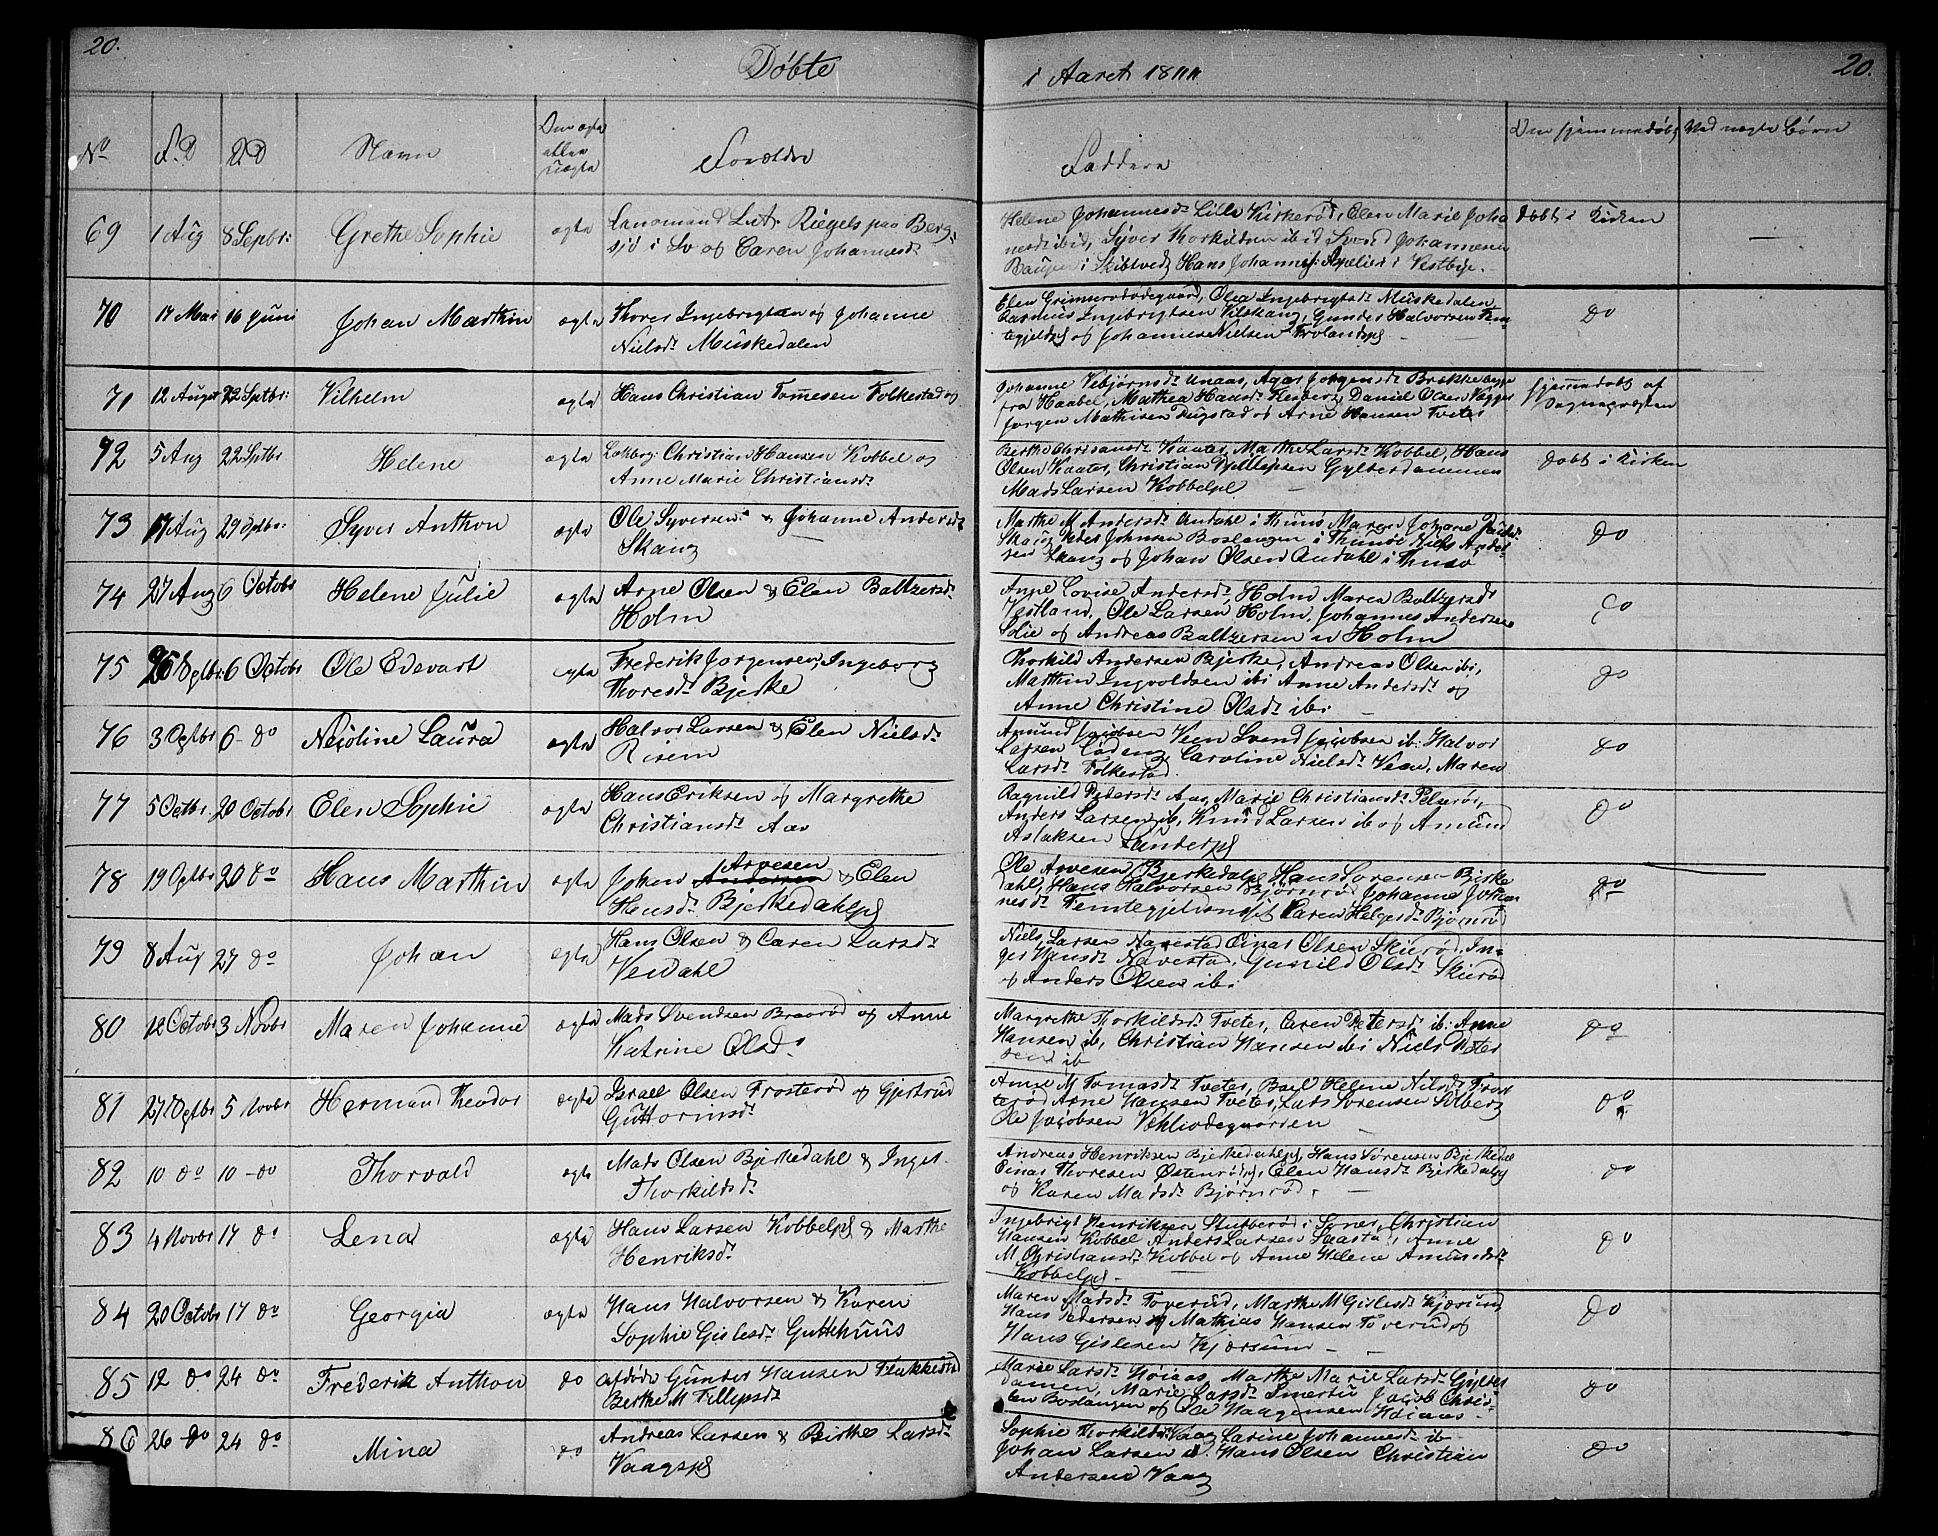 20.
Døbte
i Aaret 18
20.
No
F.D
D.D
Navn
Om ægte
eller
uægte
Forældre
Faddere
Om hjemmedøbt
Ved uægte Børn
69 1 Aug 8 Sepbr: Grethe Sophie ægte
Lensmand Lut: Riegels paa Berg:
sjø i Sv og Caren Johannesdr
Helene Johannesdr Lille Kirkerød, Elen Marie Joha
nesdr ibid, Syver Thorkildsen ibid Johannesen
i Skibtved Hans Johannes: i Vestbye.
Døbt i Kirken
70 17 Mai 16 Juni Johan Marthin ægte
Thorer Ingebrigtsen og Johanne
Nielsdr Muskedalen
Elen Grimsrødødegaard, Olea Ingebrigtsdr Muskedalen
Rasmus Ingebrigtsen Gunder Halvorsen Fem-
tegjeld og Johannes Nielsen Froland
Do
71 12 Augst 22 Sptbr: Vilhelm ægte
Hans Christian Tomesen Folkestad og
Johanne Vebjørnsdr Unaas, Agar Jørgensdr Brække
fra Haabel, Mathea Hansdr Daniel Olsen
Jørgen Mathisen og Arne Hansen Tveter
hjemmedøbt af
Sognepræsten
72 5 Aug 22 Sptbr Helene ægte
Christian Hansen Kobbel og
Anne Marie Christiansdr
Berthe Kaatos, Marthe Larsdr Kobbel, Hans
Olsen Kaatos, Christian Gylterdammen
Mads Larsen Kobbelpl
Døbt i Kirken
73 17 Aug 29 Sptbr: Syver Anthon ægte
Ole Syversen & Johanne Andersdr
Skaug
Marthe M Andersdr Andahl i Thunø Maren Johanne
Skaug Peder Johnsen Boslangen i Thunøe Niels Ander
sen Skaug og Johan Olsen Andahl i Thunø
Do
74 27 Aug 6 Octobr Helene Julie ægte
Arne Olsen & Elen Baltzersdr
Holm
Anne Lovise Andersdr Holm Maren Baltzersdr
Vestland, Ole Larsen Holm, Johannes Andersen
Solie og Andreas Baltzersen Holm
Do
75 6 Octobr Ole Edevart ægte
Frederik Jørgensen, Ingeborg
Thoresdr Bjerke
Thorkild Andersen Bjerke, Andreas Olsen ibi,
Marthin Ingvoldsen ibi Anne Andersdr og
Anne Christine Olsdr ibi
Do
76 3 Sptbr 6 Do Laura ægte
Halvor Larsen & Elen Nielsdr
Risem
Amund Jacobsen Veen Svend Jacobsen ib. Halvor
Larsen Løken Caroline Nielsdr Veen, Maren
Larsdr Folkestad
Do
77 5 Octbr 20 Octobr Elen Sophie ægte
Hans Eriksen og Margrethe
Christiansdr Aas
Ragnild Pedersdr Aas, Marie Christiansdr
Anders Larsen ib, Knud Larsen ib og Amund
Aslaksen Sunderpl
Do
78 19 Sptbr 20 Do Hans Marthin ægte
Johan Arvesen & Elen
Hansdr Bjerkedahlpl
Ole Arvesen Bjerkedalpl Hans Sørensen Bjerke
dahl, Hans Halvorsen Bjørnrød Johanne Johan
nesdr Femtegjeld Caren Helgesdr Bjørnrød
Do
79 8 Aug 27 Do Johan ægte
Hans Olsen & Caren Larsdr
Verdahl
Niels Larsen Navestad Einar Olsen Skierød, In-
ger Hansdr Navestad, Gunild Olsdr Skierød
og Anders Olsen ibi
80 12 Octobr 3 Novbr Maren Johanne ægte
Mads Svendsen Braarød og Anne
Katrine Olsdr
Margrethe Thorkildsdr Tveter, Caren Petersdr ib: Anne
Hansen ib, Christian Hansen ibi Niels Peter
sen ib
Do
81 27 Sptbr 5 Novbr Hermand Theodor ægte
Israel Olsen Frosterød og Gjertrud
Guttormsdr
Anne M Tomasdr Tveter, Boel Helene Nilsdr Fros
terød Arne Hansen Tveter, Lars Sørensen Solberg
Ole Jacobsen
Do
82 10 Do 10 Do Thorvald ægte
Mads Olsen Bjerkedahl & Ingeb.
Thorkildsdr
Andreas Henriksen Bjerkedahlpl, Hans Sørensen Bjerkeda
Einar Thoresen Østenrød, Elen Hansdr Bjerkedal
og Karen Madsdr Bjørnrød.
Do
83 4 Novbr 17 Do Lena ægte
Hans Larsen Kobbelpl & Marthe
Henriksdr
Ingebrigt Henriksen Stubberød i Soner, Christian
Hansen Kobbel Anders Larsen Saastad, Anne
M Christiansdr Kobbel og Anne Helene Amundsdr
Kobbelpl
Do
84 20 Octobr 17 Do Georgia ægte
Hans Halvorsen & Karen
Sophie Gislesdr Guttehuus
Maren Madsdr Toverud, Marthe M Gislesdr Kjærsund
Hans Pedersen og Mathias Hansen Toverud og
Hans Gislesen Kjærsund
Do
85 12 Do 24 Do Frederik Anthon Do
afdøde Gunder Hansen Flakkestad
Berthe M Fillipsdr
Marie Larsdr Høiaas, Marthe Marie Larsdr Gylter
damen, Marie Larsdr Smertu Jacob Chris-
sen Boslangen og Ole Haagensen Høiaas
Do
86 26 Do 24 Do Mina Do
Andreas Larsen & Birthe Larsdr
Vaagspl
Sophie Thorkildsdr Vaag Larine Johannesdr ib
Johan Larsen Hans Olsen Christian
Andersen Vaag
Do